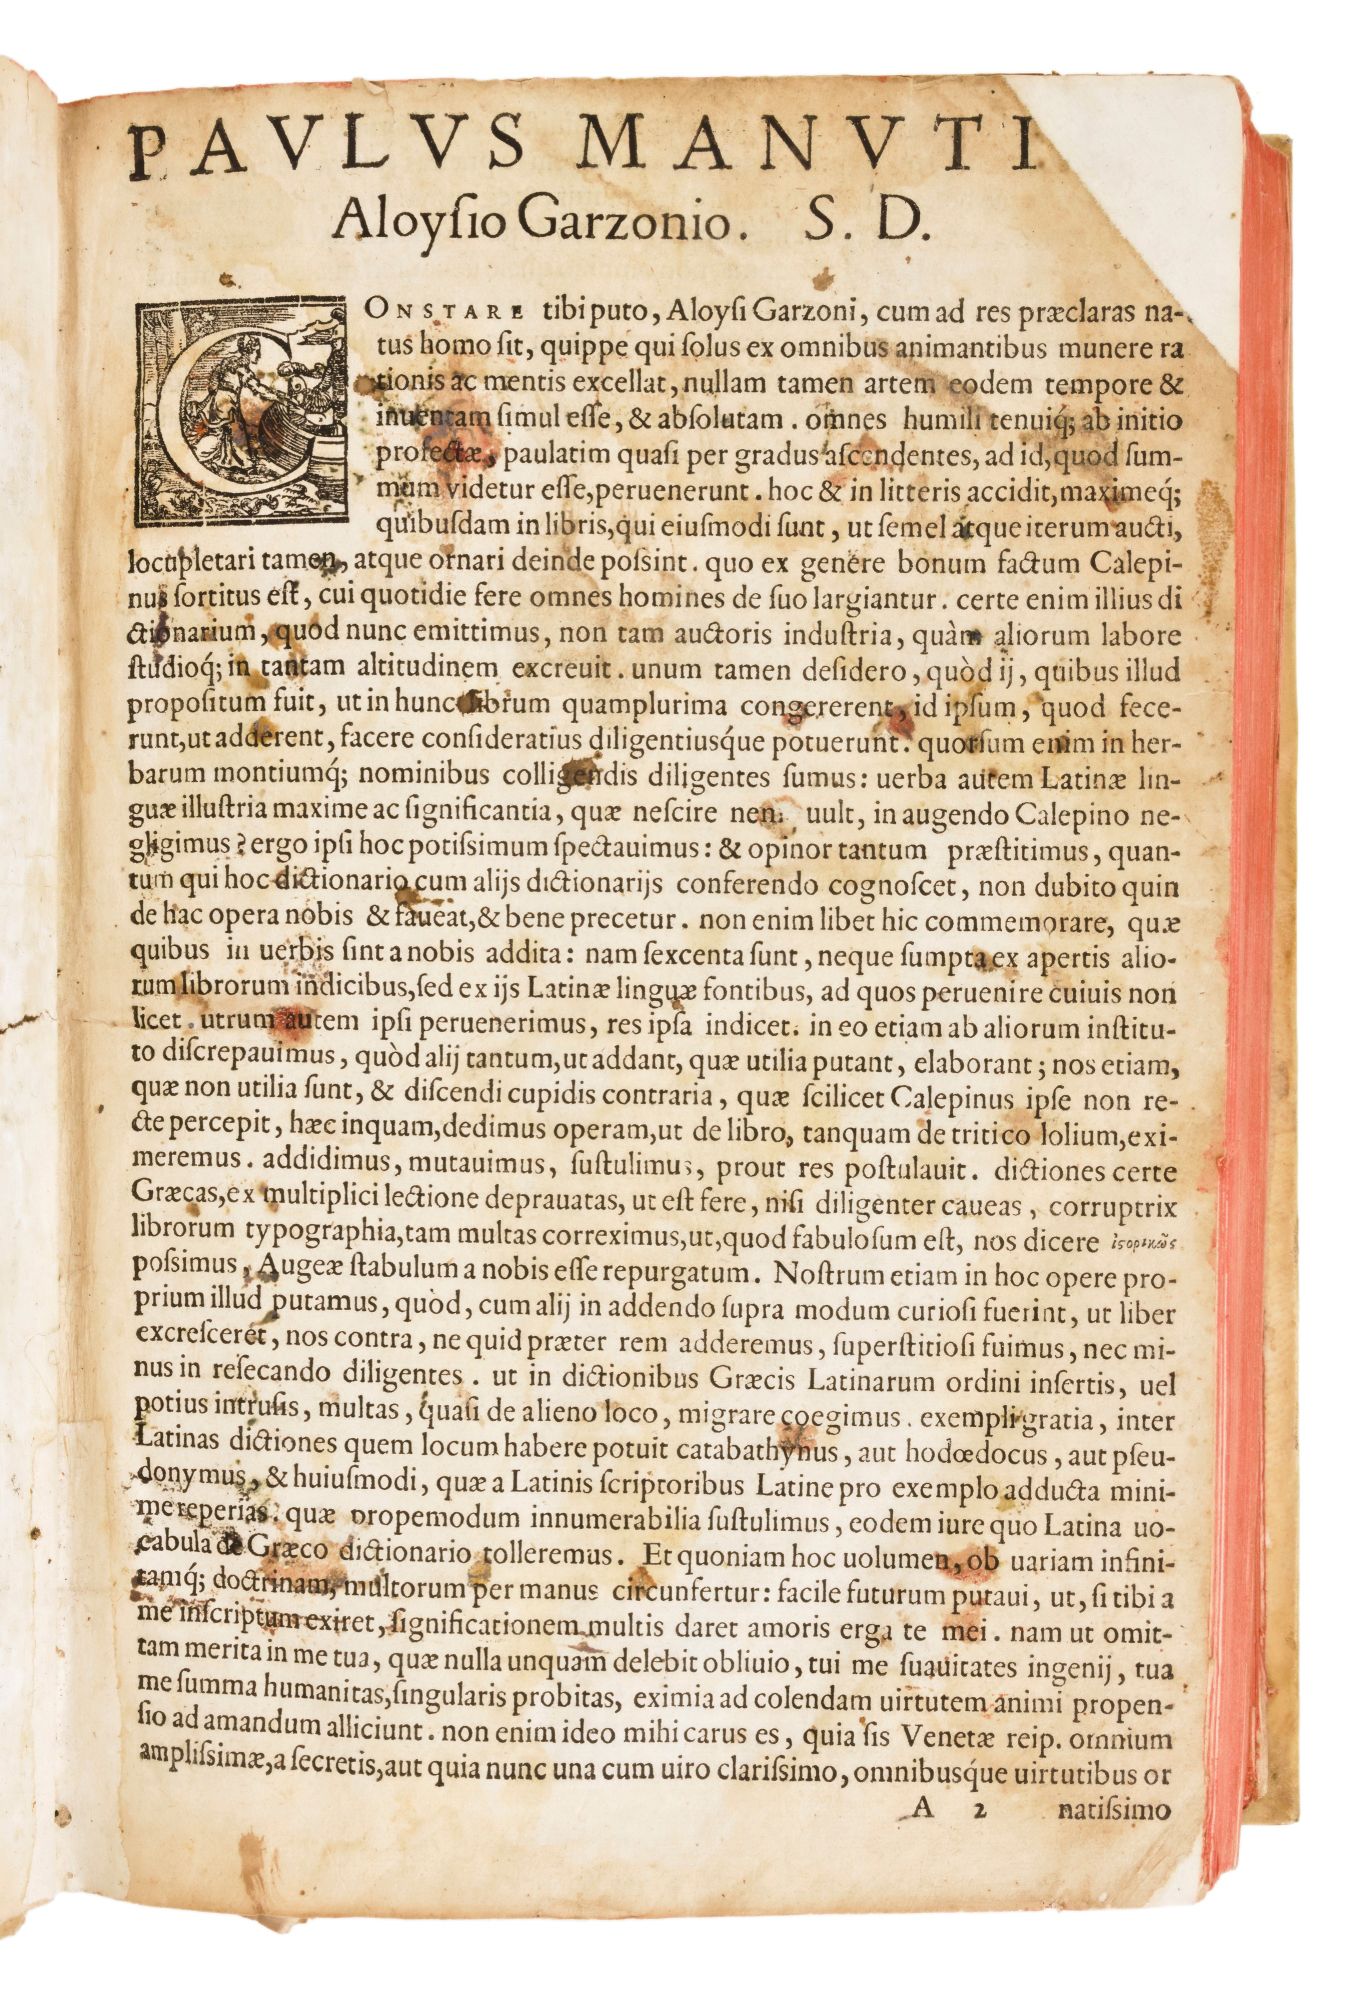 PAVLVS MANVTI
Aloyſio Garzonio. S. D.
CONSTARE tibi puto, Aloyſi Garzoni, cum ad res præclaras na-
tus homo ſit, quippe qui ſolus ex omnibus animantibus munere ra
tionis ac mentis excellat, nullam tamen artem eodem tempore &
inuentam ſimul eſſe, & abſolutam. omnes humili tenuiq́; ab initio
profectæ, paulatim quaſi per gradus aſcendentes, ad id, quod ſum-
mum videtur eſſe, peruenerunt. hoc & in litteris accidit, maximeq́;
quibuſdam in libris, qui eiuſmodi ſunt, ut ſemel atque iterum aucti,
locupletari tamen, atque ornari deinde poſsint. quo ex genere bonum factum Calepi-
nus ſortitus eſt, cui quotidie fere omnes homines de ſuo largiantur. certe enim illius di
ctionarium, quod nunc emittimus, non tam auctoris induſtria, quàm aliorum labore
ſtudioq́; in tantam altitudinem excreuit. unum tamen deſidero, quòd ij, quibus illud
propoſitum fuit, ut in hunc librum quamplurima congererent, id ipſum, quod fece-
runt, ut adderent, facere conſideratius diligentiusq́ue potuerunt. quorſum enim in her-
barum montiumq́; nominibus colligendis diligentes ſumus: uerba autem Latinæ lin-
guæ illuſtria maxime ac ſignificantia, quæ neſcire nemo uult, in augendo Calepino ne-
gligimus? ergo ipſi hoc potiſsimum ſpectauimus: & opinor tantum præſtitimus, quan-
tum qui hoc dictionario cum alijs dictionarijs conferendo cognoſcet, non dubito quin
de hac opera nobis & faueat, & bene precetur. non enim libet hic commemorare, quæ
quibus in uerbis ſint a nobis addita: nam ſexcenta ſunt, neque ſumpta ex apertis alio-
rum librorum indicibus, ſed ex ijs Latinæ linguæ fontibus, ad quos peruenire cuiuis non
licet. utrum autem ipſi peruenerimus, res ipſa indicet. in eo etiam ab aliorum inſtitu-
to diſcrepauimus, quòd alij tantum, ut addant, quæ utilia putant, elaborant; nos etiam,
quæ non utilia ſunt, & diſcendi cupidis contraria, quæ ſcilicet Calepinus ipſe non re-
cte percepit, hæc inquam, dedimus operam, ut de libro, tanquam de tritico lolium, exi-
meremus. addidimus, mutauimus, ſuſtulimus, prout res poſtulauit. dictiones certe
Græcas, ex multiplici lectione deprauatas, ut eſt fere, niſi diligenter caueas, corruptrix
librorum typographia, tam multas correximus, ut, quod fabuloſum eſt, nos dicere ἱϛορικῶς
poſsimus, Augeæ ſtabulum a nobis eſſe repurgatum. Noſtrum etiam in hoc opere pro-
prium illud putamus, quòd, cum alij in addendo ſupra modum curioſi fuerint, ut liber
excreſceret, nos contra, ne quid præter rem adderemus, ſuperſtitioſi fuimus, nec mi-
nus in reſecando diligentes. ut in dictionibus Græcis Latinarum ordini inſertis, uel
potius intruſis, multas, quaſi de alieno loco, migrare coegimus. exempli gratia, inter
Latinas dictiones quem locum habere potuit catabathynus, aut hodœdocus, aut pſeu-
donymus, & huiuſmodi, quæ a Latinis ſcriptoribus Latine pro exemplo adducta mini-
me reperias. quæ propemodum innumerabilia ſuſtulimus, eodem iure quo Latina uo-
cabula de Græco dictionario tolleremus. Et quoniam hoc uolumen, ob uariam infini-
tamq́; doctrinam, multorum per manus circunfertur: facile futurum putaui, ut, ſi tibi a
me inſcriptum exiret, ſignificationem multis daret amoris erga te mei. nam ut omit-
tam merita in me tua, quæ nulla unquam delebit obliuio, tui me ſuauitates ingenij, tua
me ſumma humanitas, ſingularis probitas, eximia ad colendam uirtutem animi propen-
ſio ad amandum alliciunt. non enim ideo mihi carus es, quia ſis Venetæ reip. omnium
ampliſsimæ, a ſecretis, aut quia nunc una cum uiro clariſsimo, omnibusq́ue uirtutibus or
A 2 natiſsimo